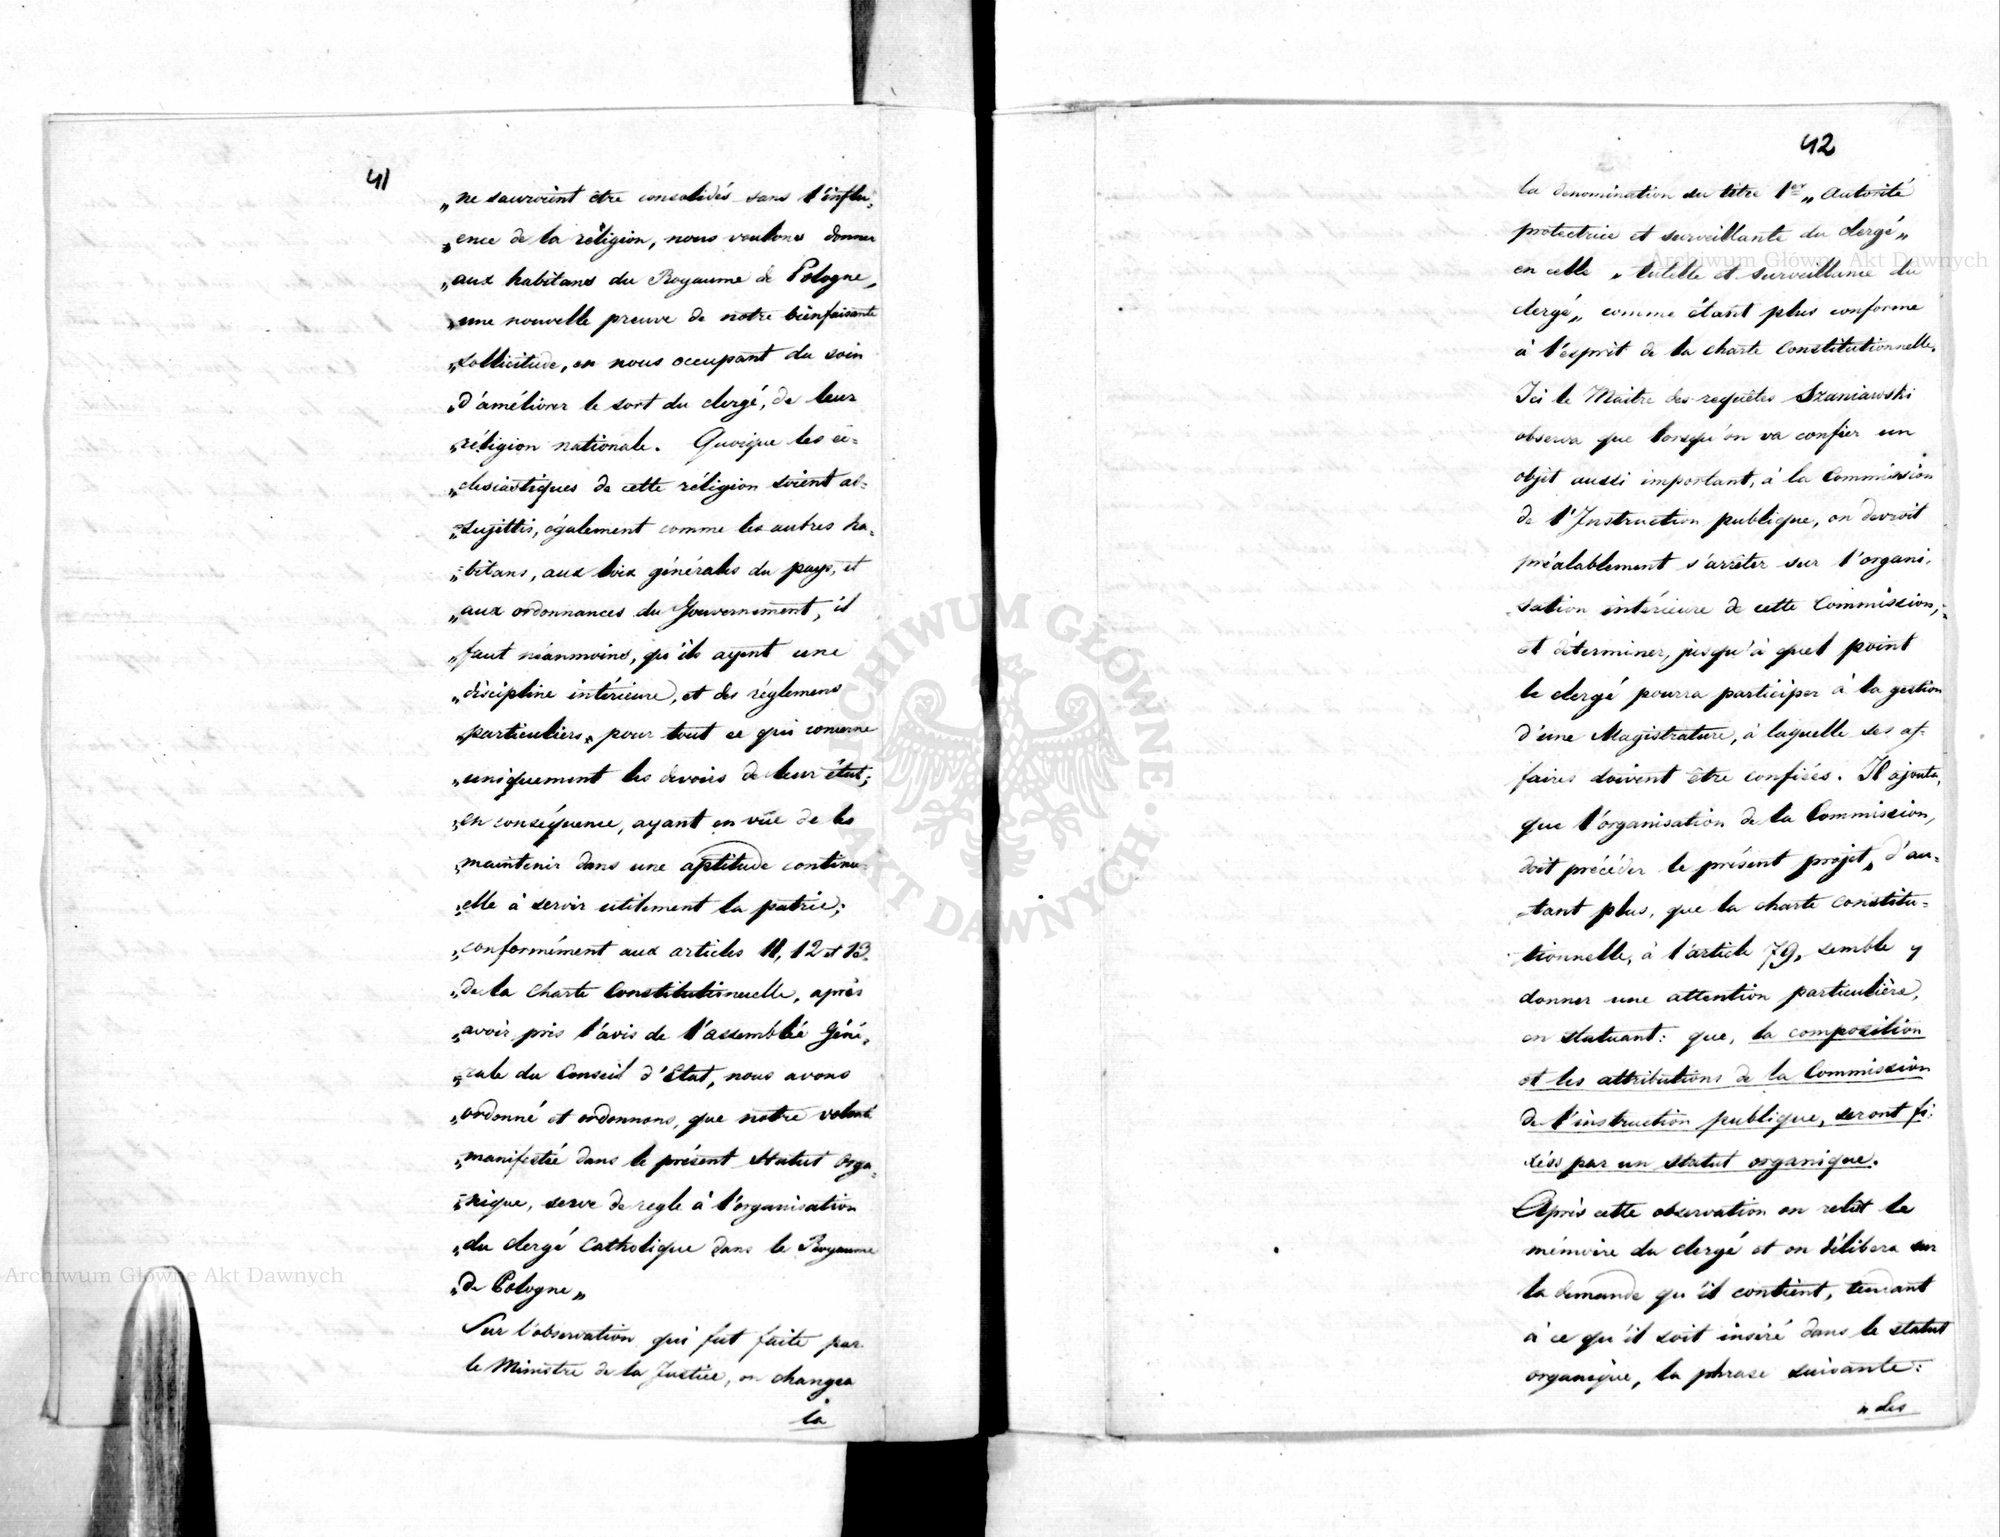 41
„ne sauroient être consolidés sans l'influ„
„ence de la réligion, nous voulons donner
„aux habitans du Royaume de Pologne„
„une nouvelle preuve de notre bienfaisante
„sollicitude, en nous occupant du soin
„d'améliorer le sort du clergé, de leur
„réligion nationale. Quoique les ec=
„clesiastiques de cette réligion soient as=
„sujettis, également comme les autres ha=
„bitans, aux loix générales du pays, et
„aux ordonnances du Gouvernement, il
„faut néanmoins, qu'ils ayent une
„discipline intérieure, et des réglemens
„particuliers, pour tout ce qui concerne
„uniquement les devoirs de leur état;
„en conséquence, ayant en vüe de les
„maintenir dans une aptitude continu=
„elle à servir utilement la patrie;
„conformément aux articles 11, 12 et 13.
„de la Charte Constitutionnelle, après
„avoir pris l'avis de l'assemblée Géné„
„rale du Conseil d'Etat, nous avons
„ordonné et ordonnons, que notre volonté
„manifestée dans le présent Statut Orga„
„nique, serve de regle à l'organisation
„du clergé Catholique dans le Royaume
„de Pologne„
Sur l'observation qui fut faite par
le Ministre de la Justice, on changea
la
42
la denomination du titre 1er „Autorité
protectrice et surveillante du clergé„
en celle „tutelle et surveillance du
clergé„ comme étant plus conforme
à l'esprit de la charte Constitutionnelle.
Ici le Maitre des requêtes Szaniawski
observa que lorsqu'on va confier un
objet aussi important, à la Commission
de l'Instruction publique, on devroit
préalablement s'arrêter sur l'organi=
sation intérieure de cette Commission,
et déterminer, jusqu'à quel point
le clergé pourra participer à la gestion
d'une Magistrature, à laquelle ses af=
faires doivent être confiées. Il ajouta,
que l'organisation de la Commission,
doit précéder le présent projet, d'au=
tant plus, que la charte constitu=
tionnelle, à l'article 79, semble y
donner une attention particulière,
en statuant: que, la composition
et les attributions de la Commission
de l'instruction publique, seront fi=
xées par un statut organique.
Après cette observation on relût le
mémoire du clergé et on délibera sur
la demande qu'il contient, tendant
à ce qu'il soit inséré dans le statut
organique, la phrase suivante:
„Les
Archiwum Główne Akt Dawnych
Archiwum Główne Akt Dawnych
ARCHIWUM GŁÓWNE AKT DAWNYCH